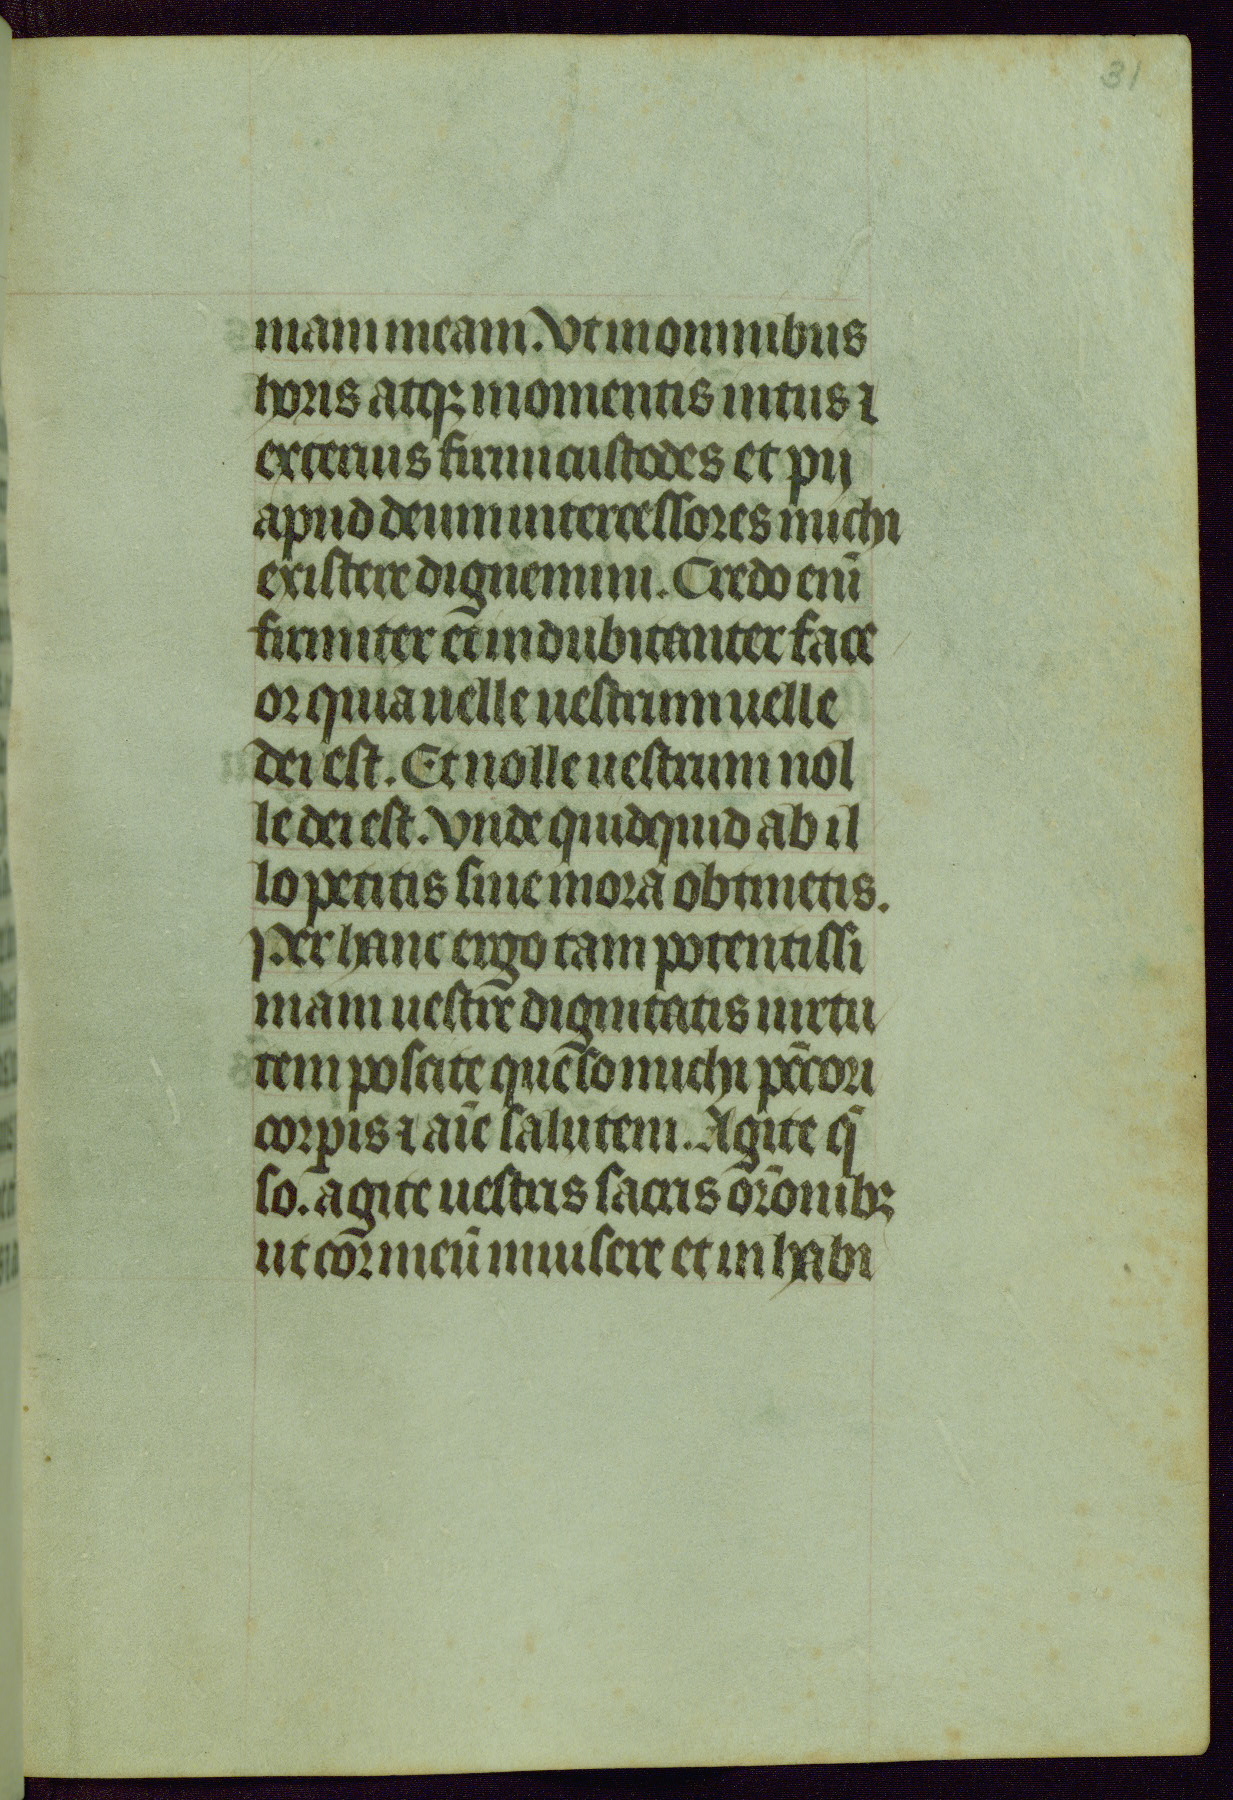 31
mam meam. Vt in omnibus
horis atqꝫ momentis intus ⁊
exterius firmi custodes et pij
apud deum intercessores michi
existere dignemini. Credo eni̅
firmiter et̅ indubitanter fate
or quia uelle uestrum uelle
dei est. Et nolle uestrum nol
le dei est. Vnde quidquid ab il
lo petitis sine mora obtinetis.
Per hanc ergo tam potentissi
mam uestre̅ dignitatis uirtu
tem poscite que̅so michi pc̅cori
corpis ⁊ ai̅e salutem. Agite q̅
so. agite uestris sacris or̅onibꝫ
ut cor meu̅ inuisere et inhabi